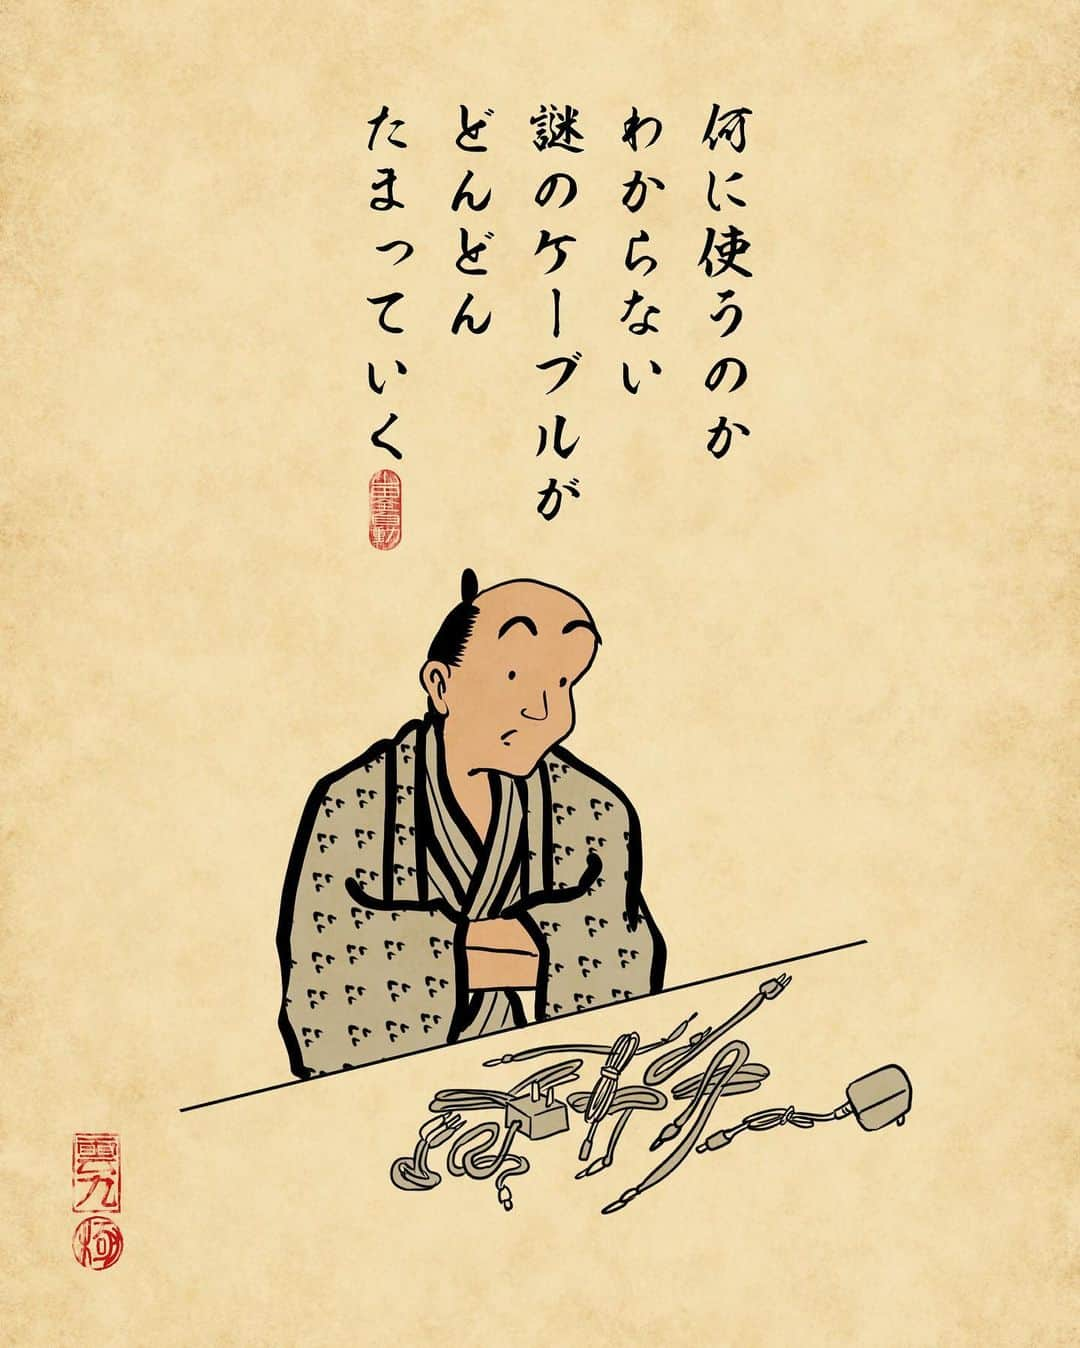 何に使うのか
わからない
謎のケーブルが
どんどん
たまっていく